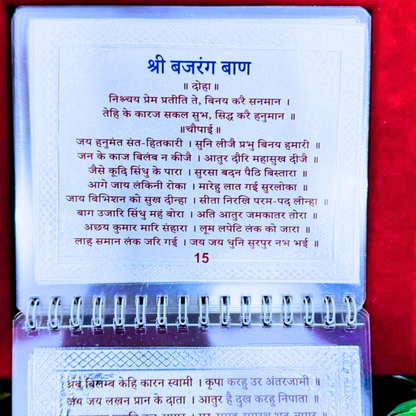 श्री बजरंग बाण
॥ दोहा॥
निश्चय प्रेम प्रतीति ते, बिनय करै सनमान ।
तेहि के कारज सकल सुभ, सिद्ध करै हनुमान ॥
॥चौपाई॥
जय हनुमंत संत-हितकारी । सुनि लीजै प्रभु बिनय हमारी ॥
जन के काज बिलंब न कीजै । आतुर दौरि महासुख दीजै ॥
जैसे कूदि सिंधु के पारा । सुरसा बदन पैठि बिस्तारा ॥
आगे जाय लंकिनी रोका । मारेहु लात गई सुरलोका ॥
जाय बिभिशन को सुख दीन्हा । सीता निरखि परम-पद लीन्हा ॥
बाग उजारि सिंधु महं बोरा । अति आतुर जमकातर तोरा ॥
अछय कुमार मारि संहारा । लूम लपेटि लंक को जारा ॥
लाह समान लंक जरि गई । जय जय धुनि सुरपुर नभ भई ॥
15
अब बिलम्ब केहि कारन स्वामी । कृपा करहु उर अंतरजामी ॥
जय जय लखन प्रान के दाता । आतुर है दुख करहु निपाता ॥